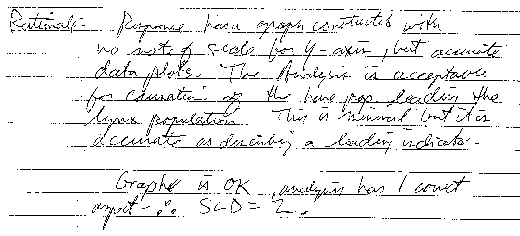 Rational:- Response has a graph constructed with
no note of scale for y-axis, but accurate
data plots. The Analysis is acceptable
for causation as the hare pop. leading the
lynx population. This is minimal but it is
accurate as describing a leading indicator.
Graph is OK, analysis has 1 correct
aspect - ∴ SCD = 2.